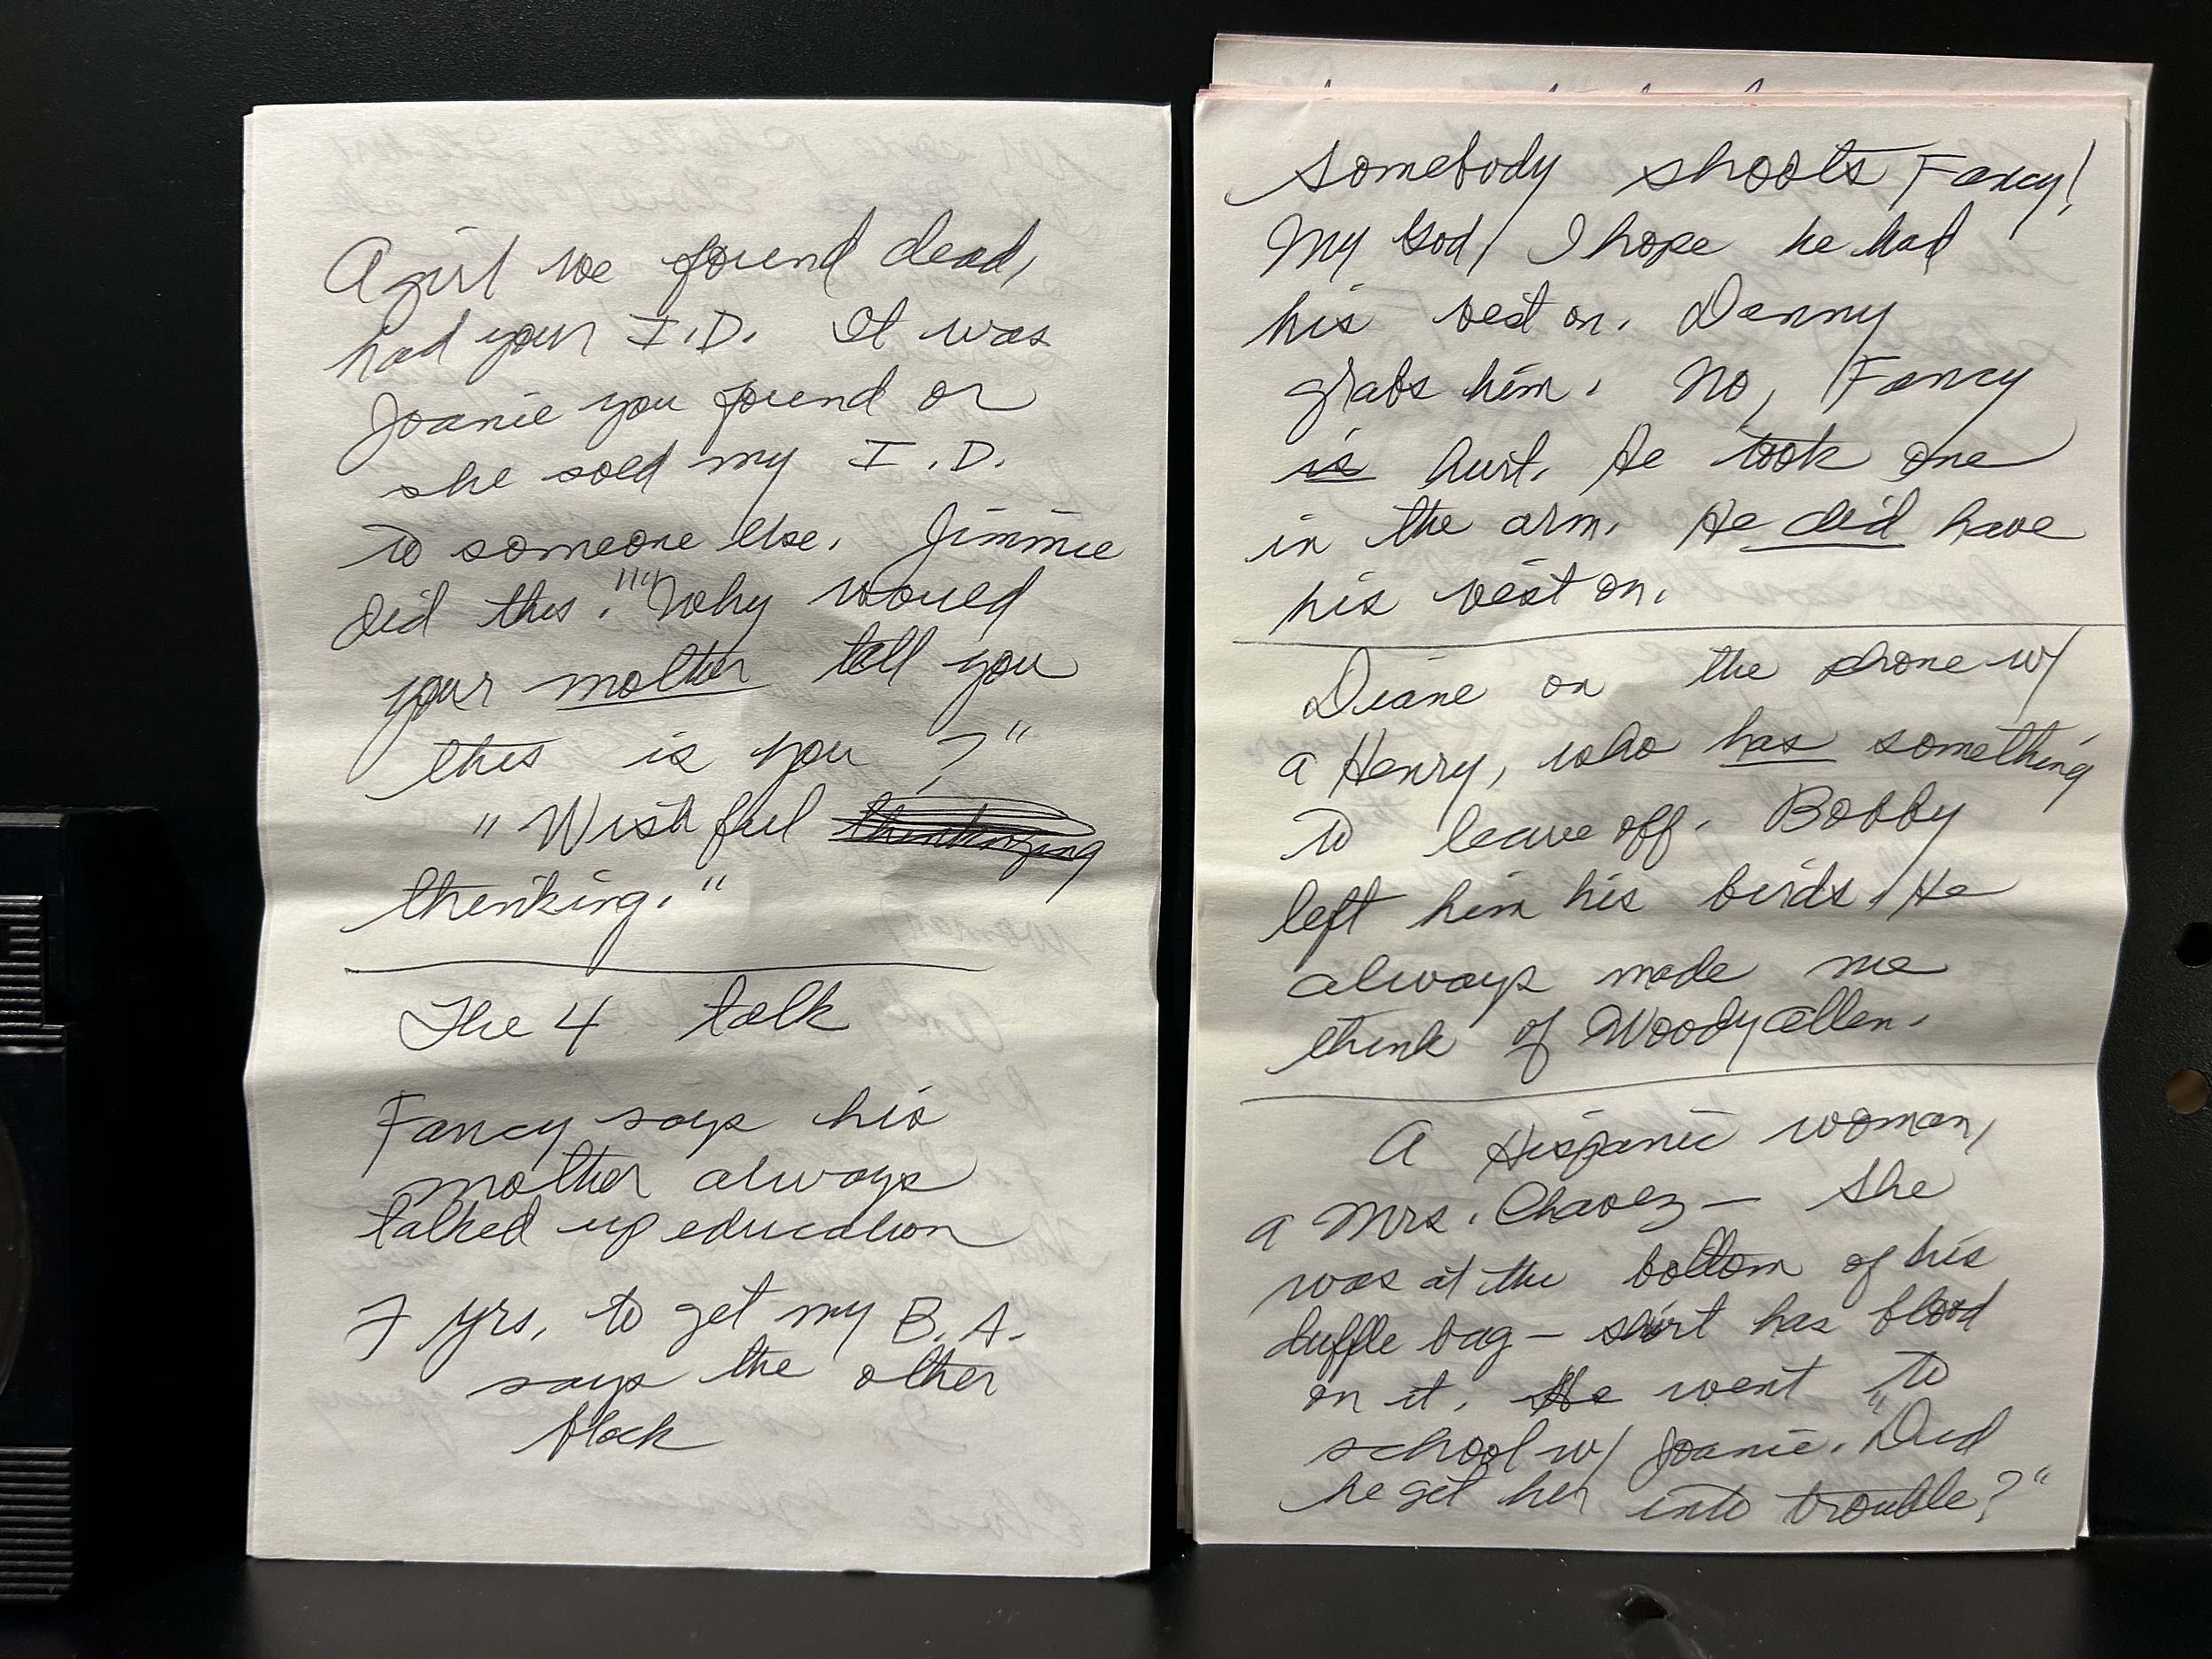 A girl we found dead,
had your I.D. It was
Joanie you found or
she sold my I.D.
to someone else. Jimmie
did this." "Why would
your mother tell you
this is you?"
"Wishful thinkinging
thinking."
The 4 talk
Fancy says his
mother always
talked up education
7 yrs, to get my B.A.
says the other
black
somebody shoots Fancy!
My God, I hope he had
his vest on. Danny
grabs him. No, Fancy
is hurt. He took one
in the arm. He did have
his vest on.
Diane on the phone w/
a Henry, who has something
to leave off. Bobby
left him his birds. He
always made me
think of Woody Allen.
A Hispanic woman,
a Mrs. Chavez — She
was at the bottom of his
duffle bag — shirt has blood
on it. He went to
school w/ Joanie. "Did
he get her into trouble?"